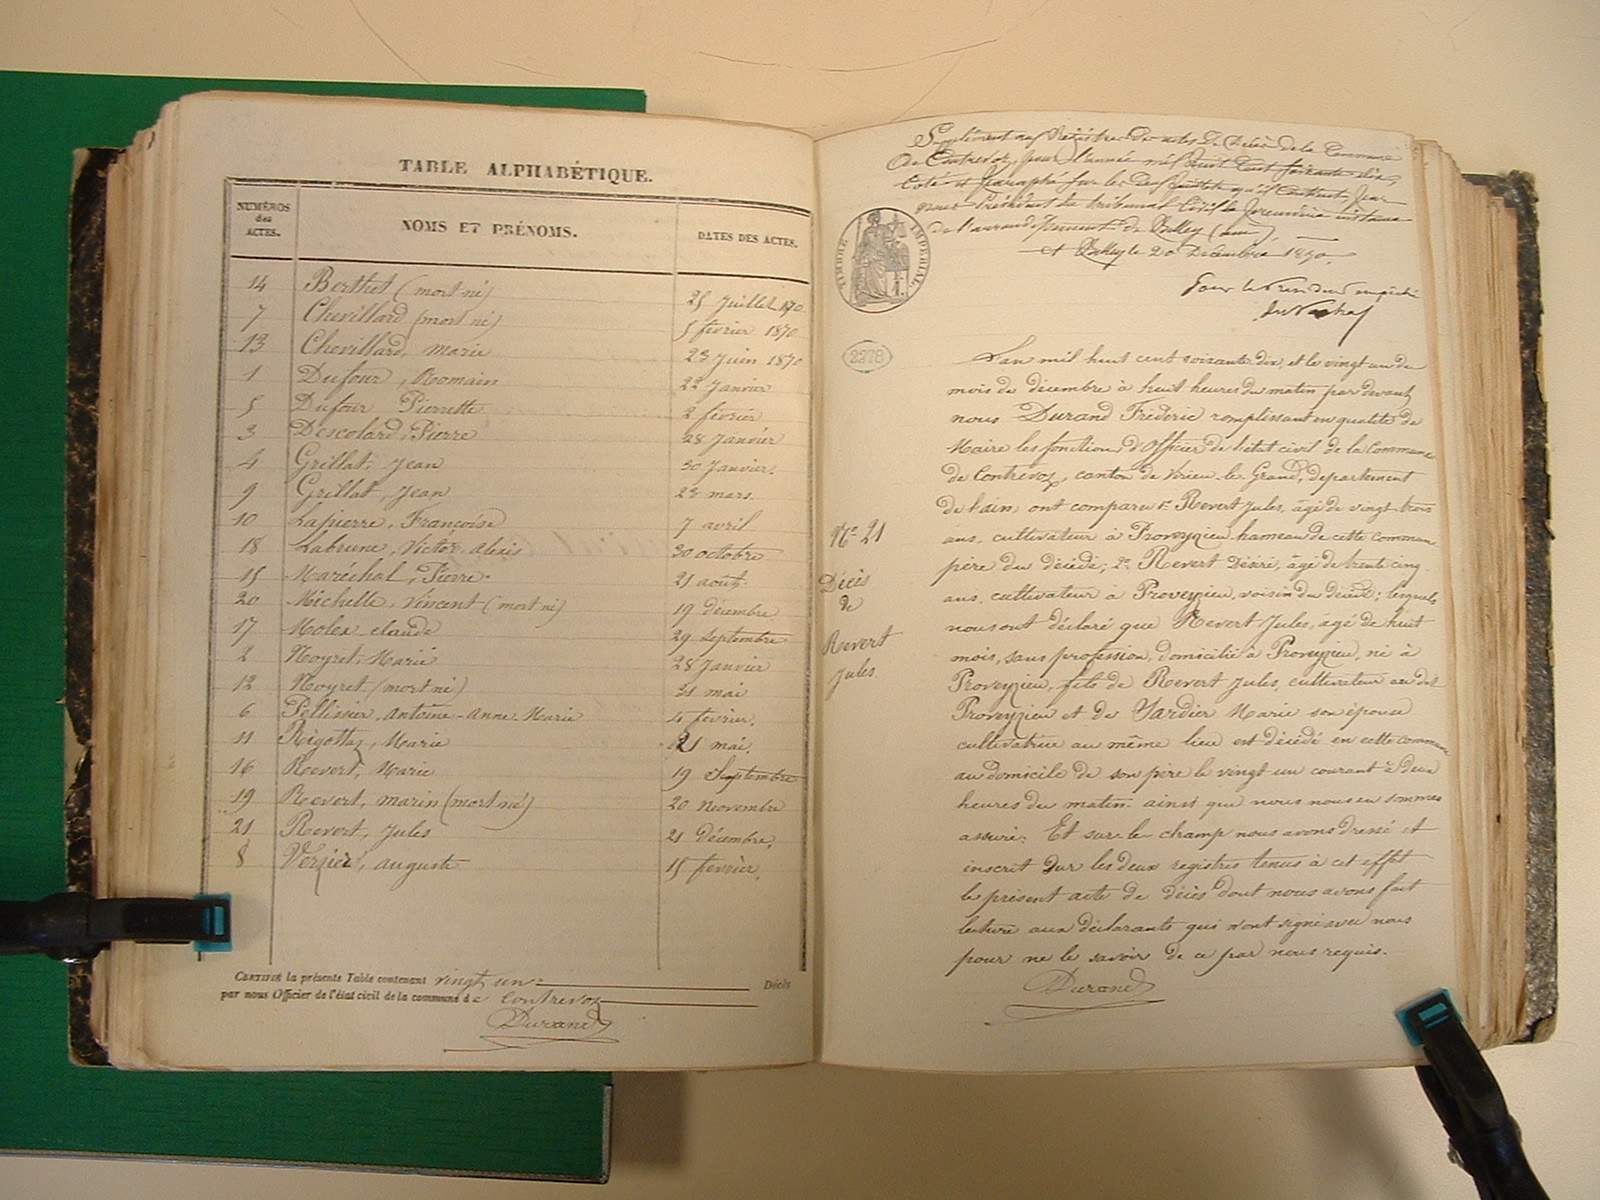 TABLE ALPHABÉTIQUE.
NUMÉROS des ACTES. NOMS ET PRÉNOMS. DATES DES ACTES.
14 Berthet (mort né) 25 Juillet 1870
7 Chevillard (mort né) 5 février 1870
13 Chevillard, Marie 23 Juin 1870
1 Dufour, Romain 22 Janvier
5 Dufour Pierrette 2 février
3 Descolard, Pierre 28 Janvier
4 Grillat, Jean 30 Janvier.
9 Grillat, Jean 23 mars
10 Lapierre, Françoise 7 avril
18 Labrune, Victor Alexis 30 octobre
15 Maréchal, Pierre. 21 août
20 Michelle, Vincent (mort né) 19 décembre
17 Molex claude 29 septembre
2 Noyret, Marie 28 Janvier
12 Noyret (mort né) 31 mai
6 Pellissier, Antoine-Anne-Marie 4 février.
11 Rigottaz, Marie 21 mai.
16 Revert, Marie 19 Septembre
19 Revert, marin (mort né) 20 Novembre
21 Revert, Jules 21 Décembre.
8 Verjier, auguste 15 février.
CERTIFIÉ la présente Table contenant vingt un Décès
par nous Officier de l'état civil de la commune de Contrevoz
Durand
Supplément au Registre des actes de Décès de la Commune
de Contrevoz, pour l'année mil huit Cent soixante dix,
Coté et Paraphé sur les
nous Président du tribunal Civil de première instance
de l'arrondissement de Belley (ain)
et Belley le 20 Décembre 1870.
Pour le Président empêché
TIMBRE IMPÉRIAL
2278
L'an mil huit cent soixante dix, et le vingt un du
mois de décembre à huit heures du matin par devant
nous Durand Fréderic remplissant en qualité de
Maire les fonctions d'Officier de l'état civil de la Commune
de Contrevoz, canton de Virieu-le-Grand, département
de l'ain, ont comparu 1° Revert Jules, âgé de vingt trois
N° 21
ans, cultivateur à Proveyzieu hameau de cette commune
père du décédé; 2° Revert Désiré, âgé de trente cinq
Décès
ans, cultivateur à Proveyzieu, voisin du décédé; lesquels
de
nous ont déclaré que Revert Jules, âgé de huit
Revert
mois, sans profession, domicilié à Proveyzieu, né à
Jules.
Proveyzieu, fils de Revert Jules, cultivateur au dit
Proveyzieu et de Jardier Marie son épouse
cultivatrice au même lieu est décédé en cette commune
au domicile de son père le vingt un courant à deux
heures du matin. ainsi que nous nous en sommes
assuré. Et sur-le champ nous avons dressé et
inscrit sur les deux registres tenus à cet effet
le présent acte de décès dont nous avons fait
lecture aux déclarants qui n'ont signé avec nous
pour ne le savoir de ce par nous requis.
Durand